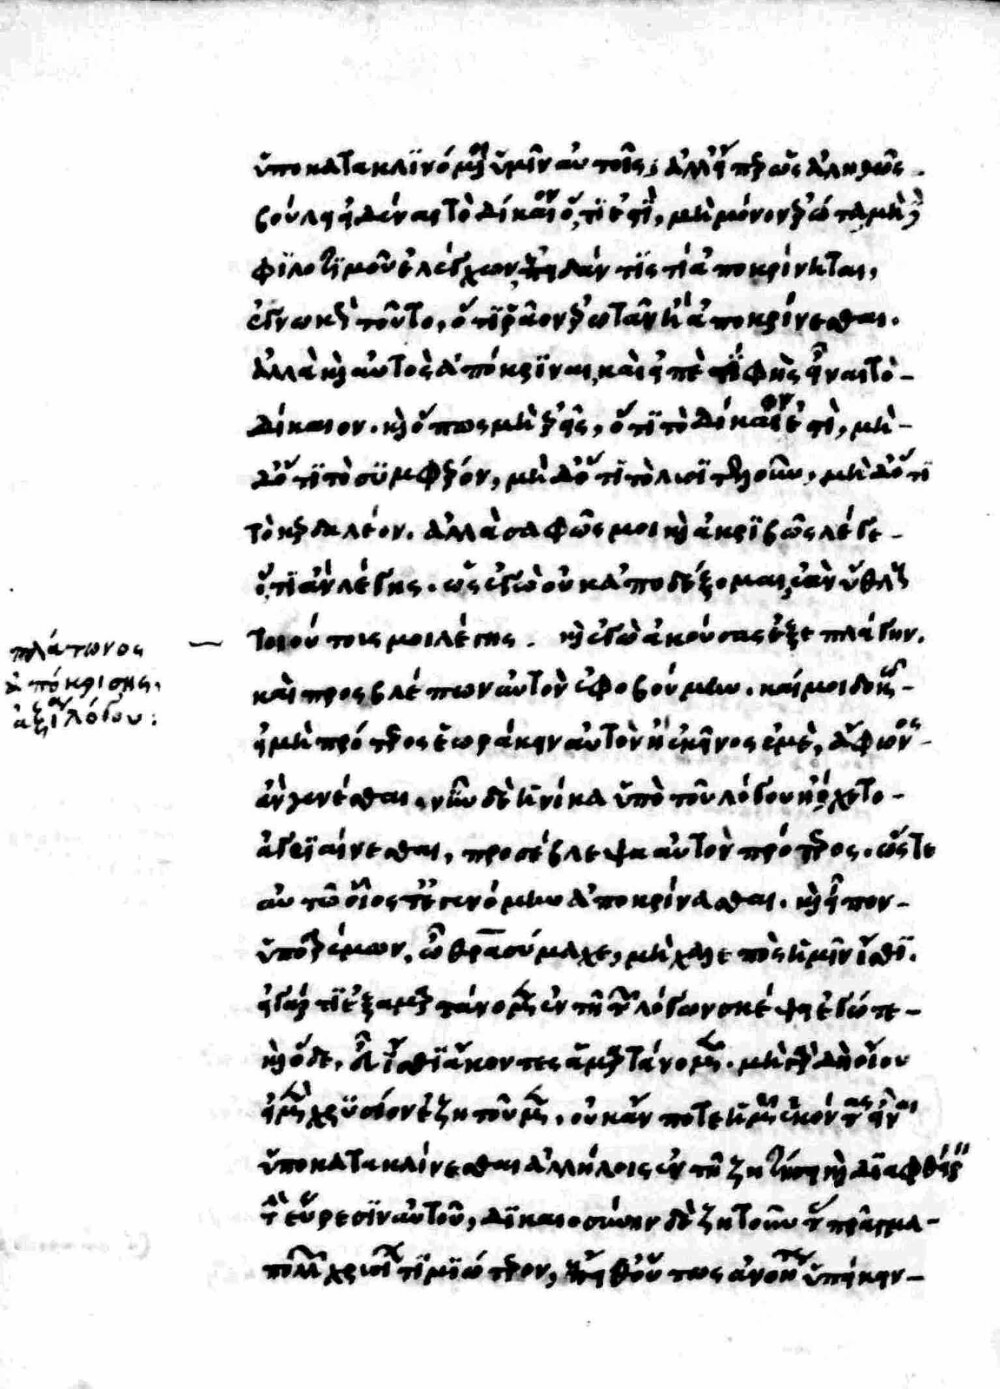 ὑποκατακλινόμενοι ὑμῖν αὐτοῖς; ἀλλ' εἴπερ ὡς ἀληθῶς
βούλει εἰδέναι τὸ δίκαιον ὅ,τι ἐστὶ, μὴ μόνον ἐρώτα μηδὲ
φιλοτιμοῦ ἐλέγχων ἐπειδάν τίς τι ἀποκρίνηται,
ἐγνωκὼς τοῦτο, ὅτι ῥᾶον ἐρωτᾶν ἢ ἀποκρίνεσθαι.
ἀλλὰ καὶ αὐτὸς ἀπόκριναι, καὶ εἰπὲ τί φῂς εἶναι τὸ
δίκαιον. καὶ ὅπως μὴ ἐρεῖς, ὅτι τὸ δίκαιον ἐστὶ, μὴ
δ' ὅτι τὸ συμφέρον, μὴ δ' ὅτι τὸ λυσιτελοῦν, μὴ δ' ὅτι
τὸ κερδαλέον. ἀλλὰ σαφῶς μοι καὶ ἀκριβῶς λέγε
ὅ,τι ἂν λέγῃς. ὡς ἐγὼ οὐκ ἀποδέξομαι, ἐὰν ὕθλους
τοιούτοις μοι λέγῃς. καὶ ἐγὼ ἀκούσας ἐξεπλάγην.
καὶ προσβλέπων αὐτὸν ἐφοβούμην. καί μοι δοκῶ
εἰ μὴ πρότερος ἑωράκειν αὐτὸν ἢ ἐκεῖνος ἐμὲ, ἄφωνος
ἂν γενέσθαι. νῦν δὲ ἡνίκα ὑπὸ τοῦ λόγου ἤρχετο
ἀγριαίνεσθαι, προσέβλεψα αὐτὸν πρότερος. ὥστε
αὐτῷ οἷός τ' ἐγενόμην ἀποκρίνασθαι. καὶ εἶπον
ὑποτρέμων, ὦ θρασύμαχε, μὴ χαλεπὸς ἡμῖν ἴσθι.
εἰ γάρ τι ἐξαμαρτάνομεν ἐν τῇ τῶν λόγων σκέψει ἐγώ τε
καὶ ὅδε, εὖ ἴσθι ἄκοντες ἁμαρτάνομεν. μὴ γὰρ δὴ οἴου
εἰ μὲν χρυσίον ἐζητοῦμεν, οὐκ ἄν ποτε ἡμᾶς ἑκόντας εἶναι
ὑποκατακλίνεσθαι ἀλλήλοις ἐν τῇ ζητήσει καὶ διαφθείρειν
τὴν εὕρεσιν αὐτοῦ, δικαιοσύνην δὲ ζητοῦντας πρᾶγμα
πολλῶν χρυσίων τιμιώτερον, ἔπειθ' οὕτως ἀνοήτως ὑπείκειν
πλάτωνος
ἀπόκρισης.
ἀξία λόγου: